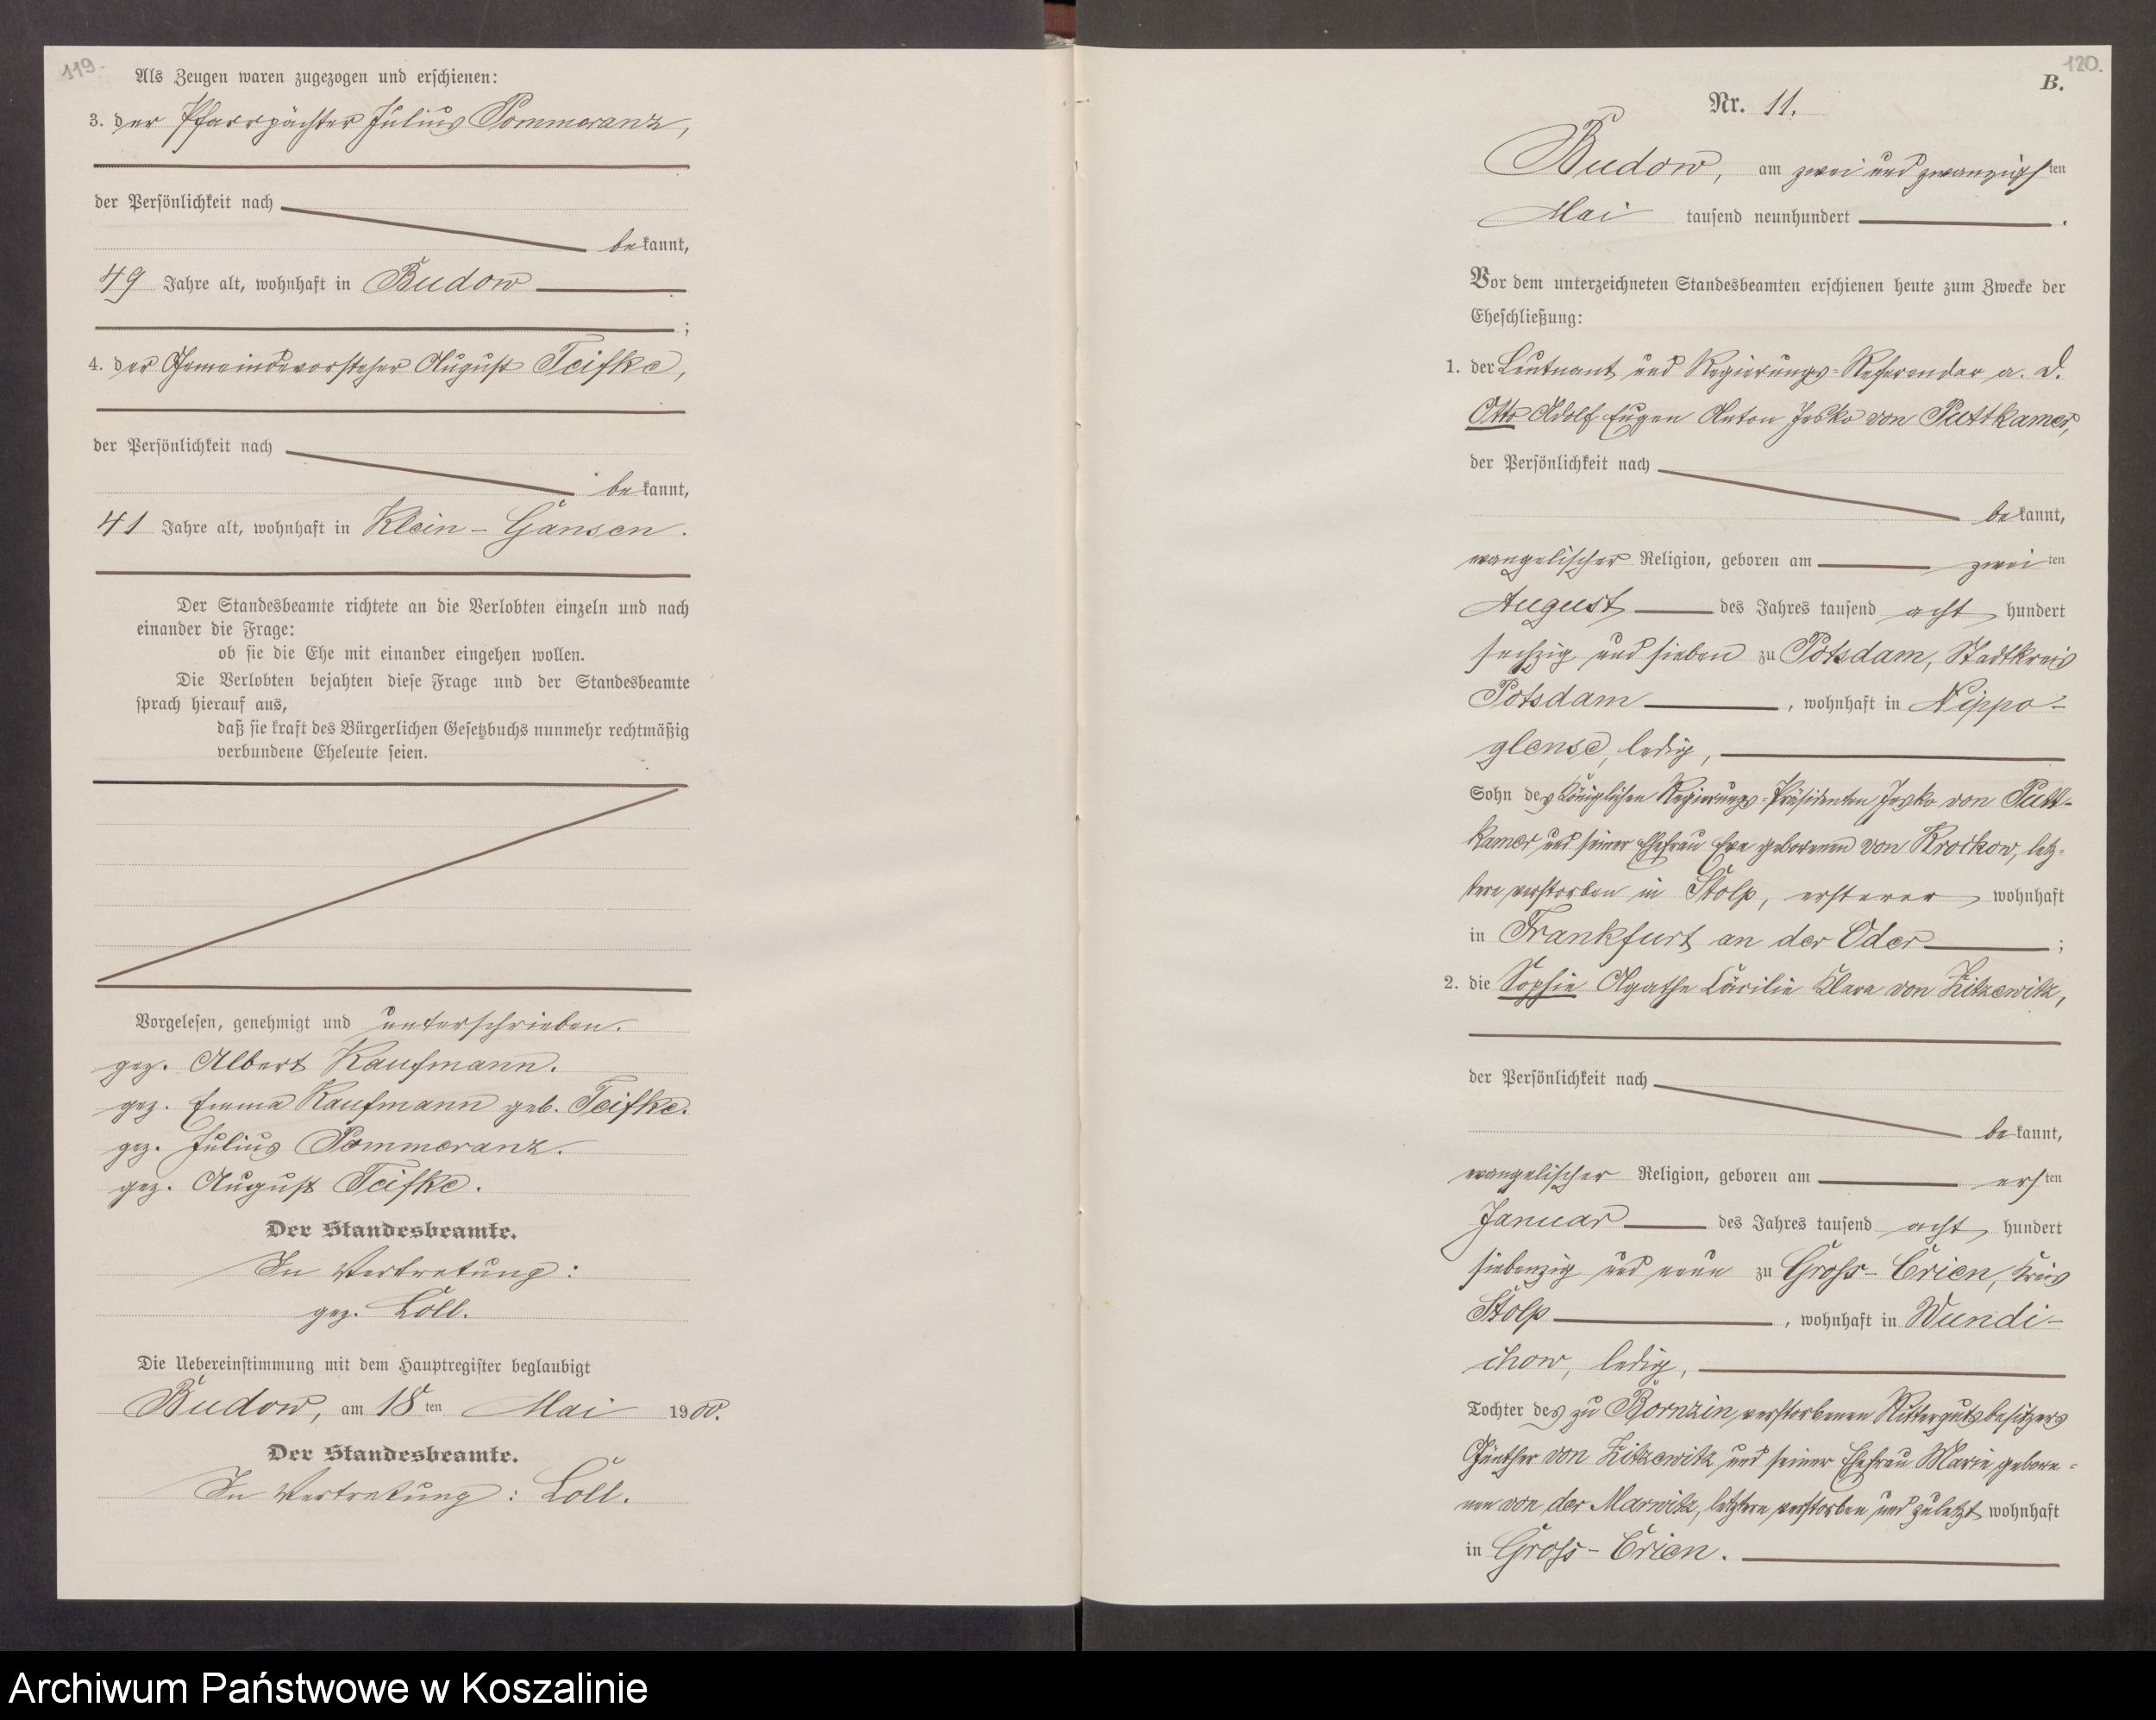 119.
Als Zeugen waren zugezogen und erschienen:
3. der Pfarrpächter Julius Pommeranz,
der Persönlichkeit nach
bekannt,
49 Jahre alt, wohnhaft in Budow
;
4. der Gemeindevorsteher August Teifke,
der Persönlichkeit nach
bekannt,
41 Jahre alt, wohnhaft in Klein-Gansen.
Der Standesbeamte richtete an die Verlobten einzeln und nach
einander die Frage:
ob sie die Ehe mit einander eingehen wollen.
Die Verlobten bejahten diese Frage und der Standesbeamte
sprach hierauf aus,
daß sie kraft des Bürgerlichen Gesetzbuchs nunmehr rechtmäßig
verbundene Eheleute seien.
Vorgelesen, genehmigt und unterschrieben.
gez. Albert Kaufmann.
gez. Emma Kaufmann geb. Teifke.
gez. Julius Pommeranz.
gez. August Teifke.
Der Standesbeamte.
In Vertretung:
gez. Löll.
Die Uebereinstimmung mit dem Hauptregister beglaubigt
Budow, am 18ten Mai 1900.
Der Standesbeamte.
In Vertretung: Löll.
120.
B.
Nr. 11.
Budow, am zwei und zwanzigsten
Mai tausend neunhundert .
Vor dem unterzeichneten Standesbeamten erschienen heute zum Zwecke der
Eheschließung:
1. der Leutnant und Regierungs-Referendar a. D.
Otto Adolf Eugen Anton Jesko von Puttkamer,
der Persönlichkeit nach
bekannt,
evangelischer Religion, geboren am zweiten
August des Jahres tausend acht hundert
sechzig und sieben zu Potsdam, Stadtkreis
Potsdam, wohnhaft in Nippo-
glense, ledig,
Sohn des Königlichen Regierungs-Präsidenten Jesko von Putt-
kamer und seiner Ehefrau Eva geborenen von Krockow, letz-
tere verstorben in Stolp, ersterer wohnhaft
in Frankfurt an der Oder ;
2. die Sophie Agathe Cäcilie Klara von Zitzewitz,
der Persönlichkeit nach
bekannt,
evangelischer Religion, geboren am ersten
Januar des Jahres tausend acht hundert
siebenzig und neun zu Gross-Crien, Kreis
Stolp, wohnhaft in Wundi-
chow, ledig,
Tochter des zu Bornzin verstorbenen Rittergutsbesitzers
Günther von Zitzewitz und seiner Ehefrau Marie gebore-
nen von der Marwitz, letztere verstorben und zuletzt wohnhaft
in Gross-Crien.
Archiwum Państwowe w Koszalinie